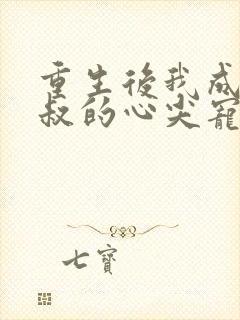 重生後我成
叔的心尖寵
七寶